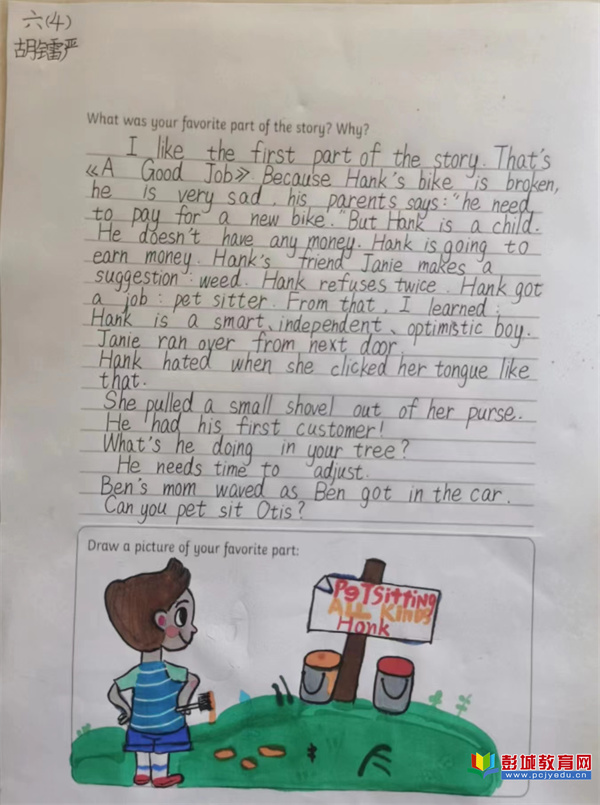 六(4)
胡镭严
What was your favorite part of the story? Why?
I like the first part of the story. That's
《A Good Job》. Because Hank's bike is broken,
he is very sad, his parents says: "he need
to pay for a new bike." But Hank is a child.
He doesn't have any money. Hank is going to
earn money. Hank's friend Janie makes a
suggestion: weed. Hank refuses twice. Hank got
a job: pet sitter. From that, I learned:
Hank is a smart、independent、optimistic boy.
Janie ran over from next door.
Hank hated when she clicked her tongue like
that.
She pulled a small shovel out of her purse.
He had his first customer!
What's he doing in your tree?
He needs time to adjust.
Ben's mom waved as Ben got in the car.
Can you pet sit Otis?
Draw a picture of your favorite part:
PeTSitting
ALL KinDS
Hank
彭城教育网
www.pcjyedu.cn